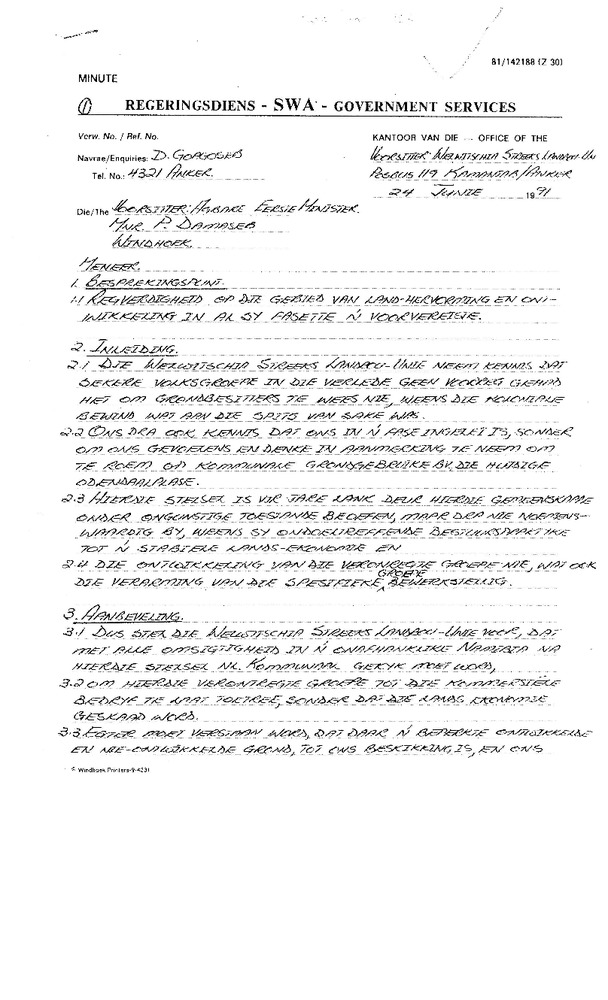 81/142188 (Z 30)
MINUTE
① REGERINGSDIENS - SWA - GOVERNMENT SERVICES
Verw. No. / Ref. No.
KANTOOR VAN DIE — OFFICE OF THE
Navrae/Enquiries: D. GOAGOSEB
VOORSITTER WELWITSCHIA STREEKS LANDBOU-UN
Tel. No.: 4321 ANKER.
POSBUS 119 KAMANJAB/ANKER
24 JUNIE 1991
Die/The VOORSITTER: AGBARE EERSTE MINISTER.
MNR. P. DAMASEB
WINDHOEK.
MENEER.
1. BESPREKINGSPUNT.
1.1 REGVERDIGHEID OP DIE GEBIED VAN LAND-HERVORMING EN ONT-
WIKKELING IN AL SY FASETTE 'N VOORVEREISTE.
2. INLEIDING.
2.1 DIE WELWITSCHIA STREEKS LANDBOU-UNIE NEEM KENNIS DAT
SEKERE VOLKSGROEPE IN DIE VERLEDE GEEN VOORREG GEHAD
HET OM GRONDBESITTERS TE WEES NIE, WEENS DIE KOLONIALE
BEWIND WAT AAN DIE SPITS VAN SAKE WAS.
2.2 ONS DRA OOK KENNIS DAT ONS IN 'N FASE INGELEI IS, SONDER
OM ONS GEVOELENS EN DENKE IN AANMERKING TE NEEM OM
TE ROEM OP KOMMUNALE GRONDGEBRUIKE BY DIE HUIDIGE
ODENDAALPLASE.
2.3 HIERDIE STELSEL IS VIR JARE LANK DEUR HIERDIE GEMEENSKAPPE
ONDER ONGUNSTIGE TOESTANDE BEOEFEN, MAAR DRA NIE NOEMENS-
WAARDIG BY, WEENS SY ONDOELTREFFENDE BESTUURSPRAKTYKE
TOT 'N STABIELE LANDS-EKONOMIE EN
2.4 DIE ONTWIKKELING VAN DIE VERONREGTE GROEPE NIE, WAT OOK
DIE VERARMING VAN DIE SPESIFIEKE GROEPE BEWERKSTELLIG.
3. AANBEVELING.
3.1 DUS STEL DIE WELWITSCHIA STREEKS LANDBOU-UNIE VOOR, DAT
MET ALLE OMSIGTIGHEID IN 'N ONAFHANKLIKE NAMIBIA NA
HIERDIE STELSEL NL. KOMMUNAAL GEKYK MOET WORD,
3.2 OM HIERDIE VERONTREGTE GROEPE TOT DIE KOMMERSIËLE
BEDRYF TE LAAT TOETREE, SONDER DAT DIE LANDS EKONOMIE
GESKAAD WORD.
3.3 EGTER MOET VERSTAAN WORD, DAT DAAR 'N BEPERKTE ONTWIKKELDE
EN NIE-ONTWIKKELDE GROND, TOT ONS BESKIKKING IS, EN ONS
Windhoek Printers-9-4231